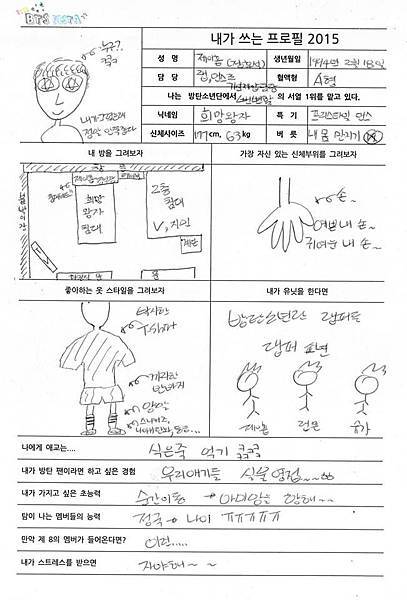 BTS FESTA
내가 쓰는 프로필 2015
성 명 제이홉 (정호석) 생년월일 1994년 2월 18일
담 당 랩, 댄스 혈액형 A형
나는 방탄소년단에서 의 서열 1위를 맡고 있다.
닉네임 희망왕자 특 기 프리스타일 댄스
신체사이즈 177cm, 63kg 버 릇 내 몸 만지기
누구?
내 방을 그려보자
희망
왕자
침대
2층
침대
V, 지민
가장 자신 있는 신체부위를 그려보자
손~
예쁜 내 손~
귀여운 내 손~
좋아하는 옷 스타일을 그려보자
박시한
T-shirt
양말
내가 유닛을 한다면
방탄소년단 래퍼들
래퍼 포면
제이홉 랩몬 슈가
나에게 애교는.... 식은죽 먹기 ㅋㅋㅋㅋ
내가 방탄 팬이라면 하고 싶은 경험 우리얘기들 실물영접~~
내가 가지고 싶은 초능력 순간이동
탐이 나는 멤버들의 능력 정국 → 나이 ㅠㅠㅠㅠㅠ
만약 제 8의 멤버가 들어온다면? 이런.....
내가 스트레스를 받으면 자야해~ ~